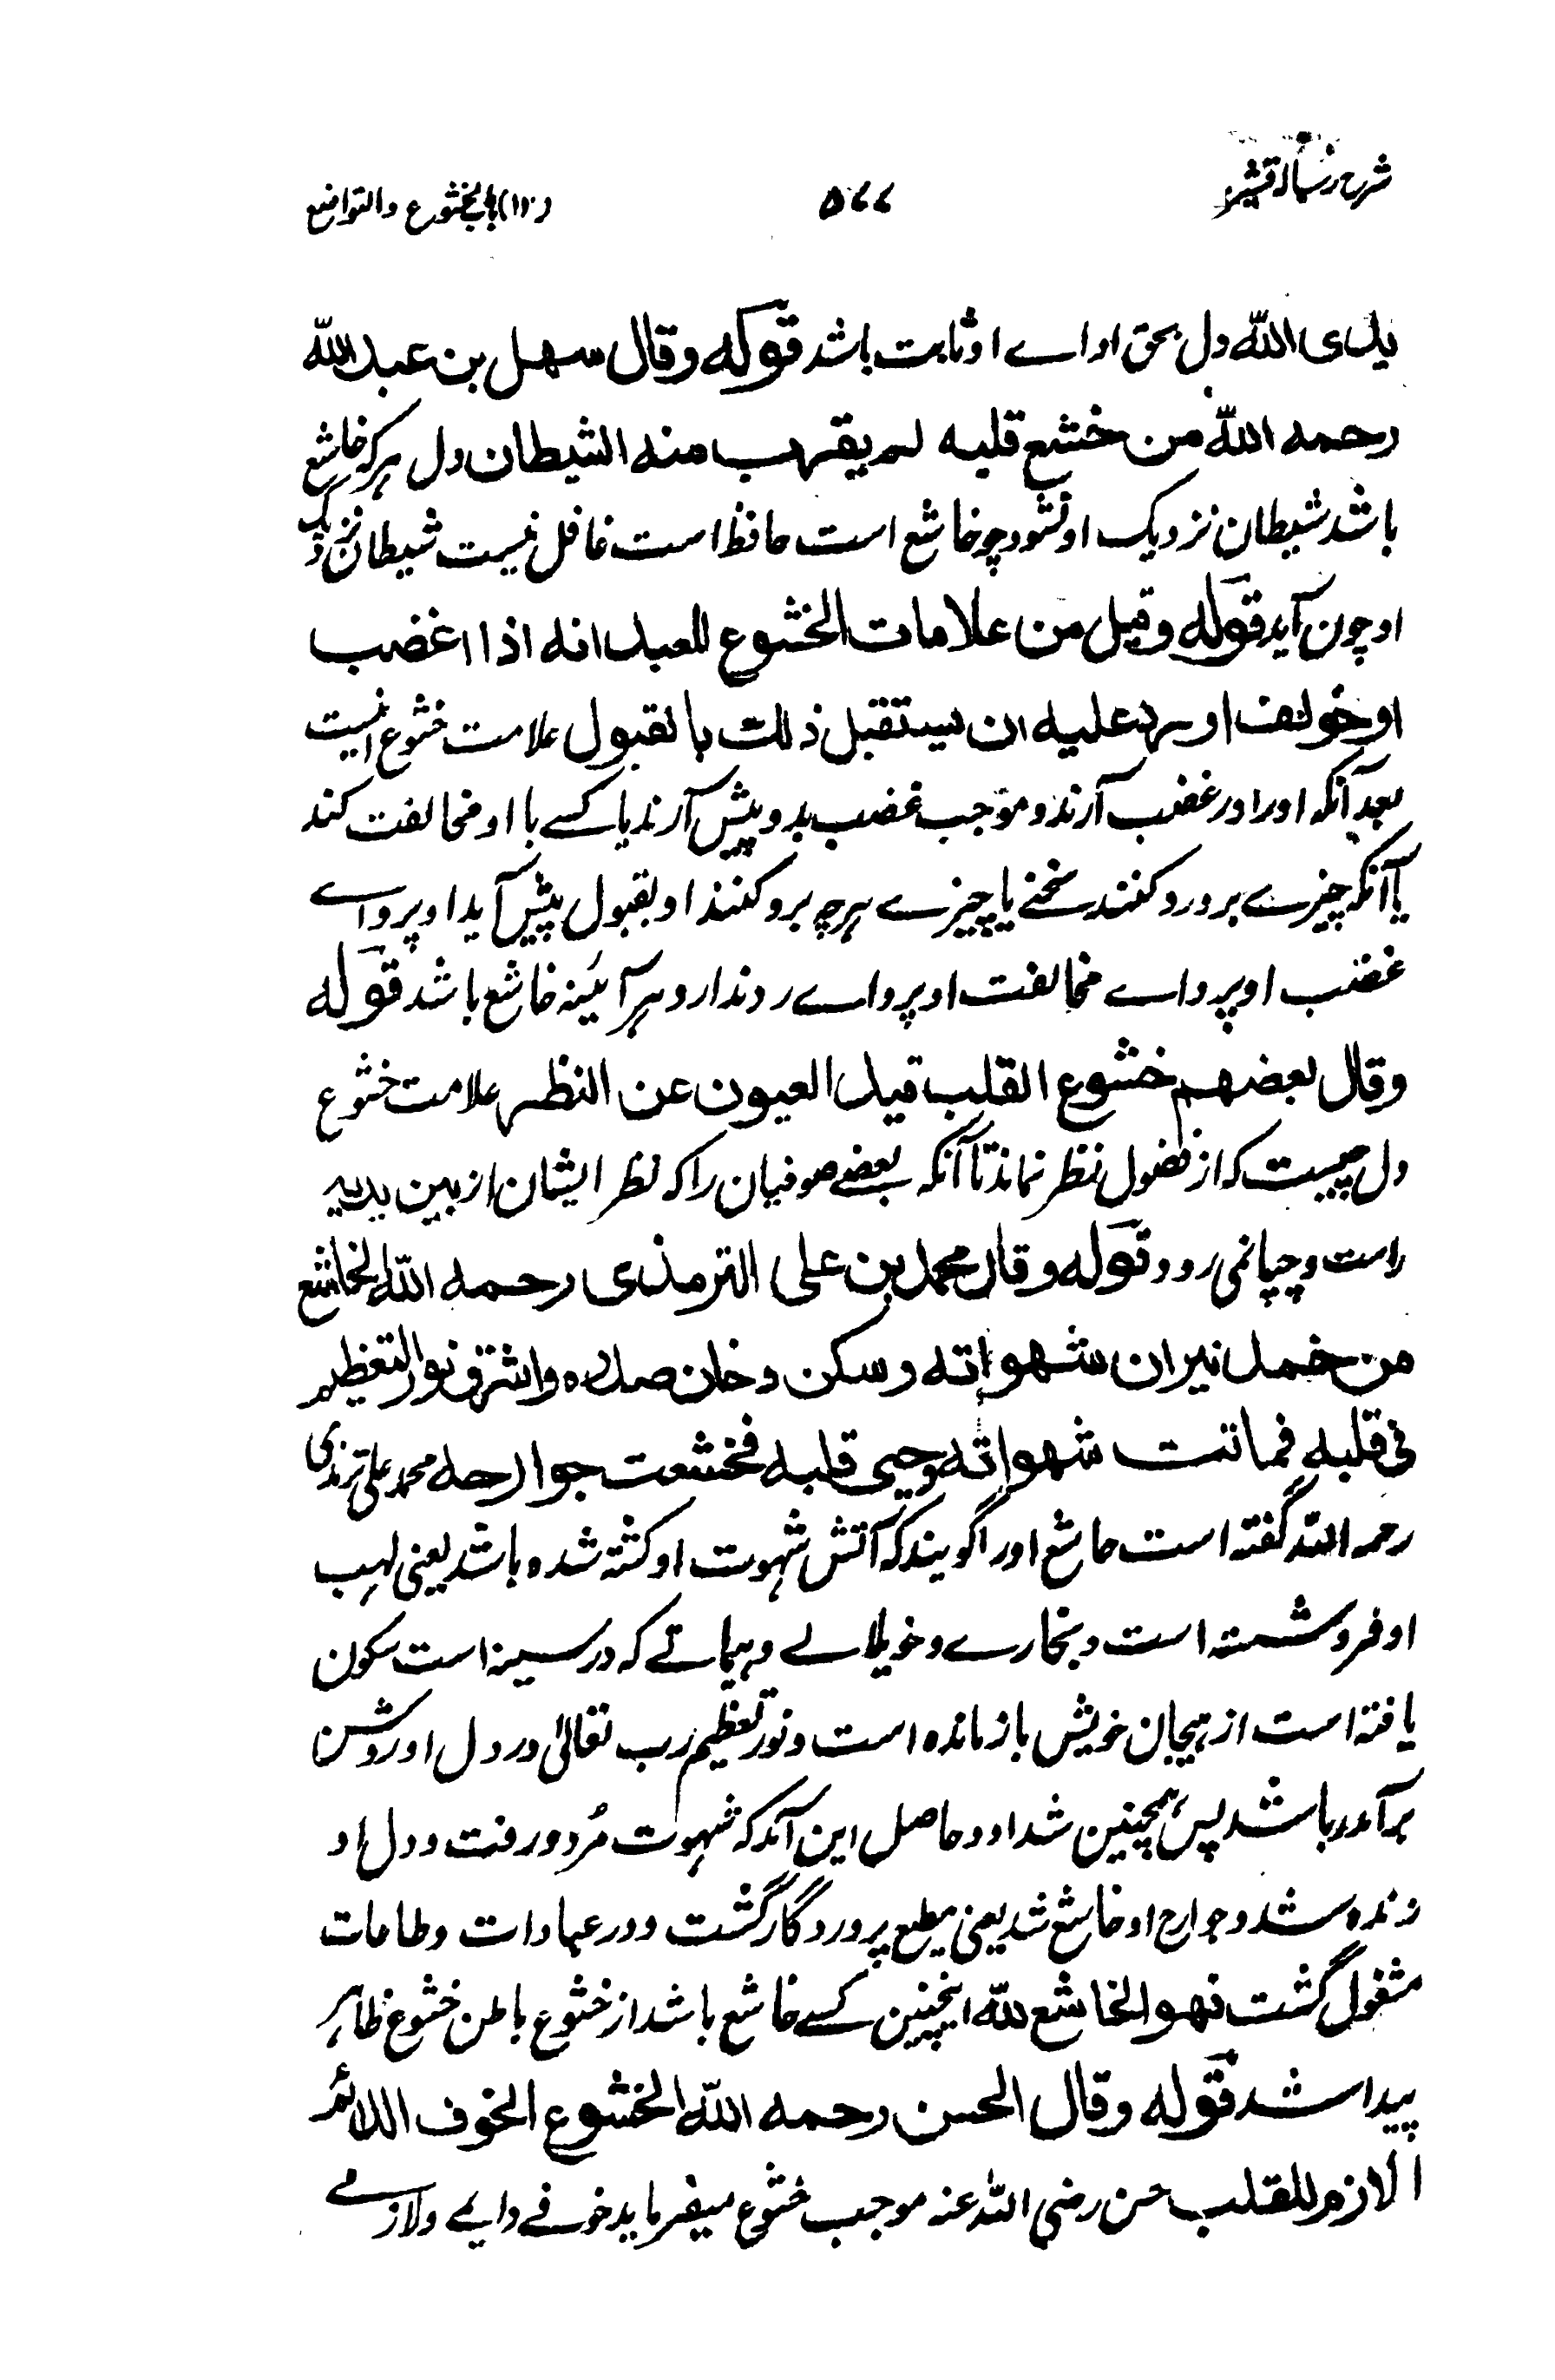 شرح رساله قشیریه ۵۷۷ (۱۰) باب الخشوع والتواضع
یدی الله دل بحق اداے او ثابت باشد قوله وقال سهل بن عبد الله
رحمه الله من خشع قلبه لم یقرب منه الشیطان دل هر که خاشع
باشد شیطان نزدیک او نشود چو خاشع است حافظ است غافل نیست شیطان نزدیک
او چون آید قوله وقیل من علامات الخشوع للعبد انه اذا اغضب
او خولف او رد علیه ان یستقبل ذلك بالقبول علامت خشوع اینست
بعد آنکه اورا در غضب آرند و موجب غضب بدو پیش آرند یا کسے با او مخالفت کند
یا آنکه چیزے برو رد کنند سخنے یا چیزے هرچه برو کنند او بقبول پیش آید او پرواے
غضب او پرواے مخالفت او پرواے رد ندارد هر آئینه خاشع باشد قوله
وقال بعضهم خشوع القلب قید العیون عن النظر علامت خشوع
دل چیست که از فضول نظر نماند تا آنکه بعضے صوفیان را که نظر ایشان از بین یدیه
راست و چپا نمی رود قوله وقال محمد بن علی الترمذی رحمه الله الخاشع
من خمد نیران شهواته وسکن دخان صدره واشرق نور التعظیم
فی قلبه فماتت شهواته وحیی قلبه فخشعت جوارحه محمد علی ترمذی
رحمه الله گفته است خاشع اورا گویند که آتش شهوت او کشته شده باشد یعنی لهب
او فرو شسته است و بخارے و خویلالے و هیماتے که در سینه است سکون
یافته است از هیجان خویش باز مانده است و نور تعظیم رب تعالیٰ در دل او روشن
برآمده باشد پس همچنین شد او و حاصل این آمد که شهوت مُرد و رفت و دل او
زنده شد و جوارح او خاشع شد یعنی مطیع پروردگار گشت و در عبادات و طاعات
مشغول گشت فهو الخاشع لله اینچنین کسے خاشع باشد از خشوع باطن خشوع ظاهر
پیدا شد قوله وقال الحسن رحمه الله الخشوع الخوف الدائم
الازم للقلب حسن رضی الله عنه موجب خشوع میفرماید خوفے دایمے ولازمے